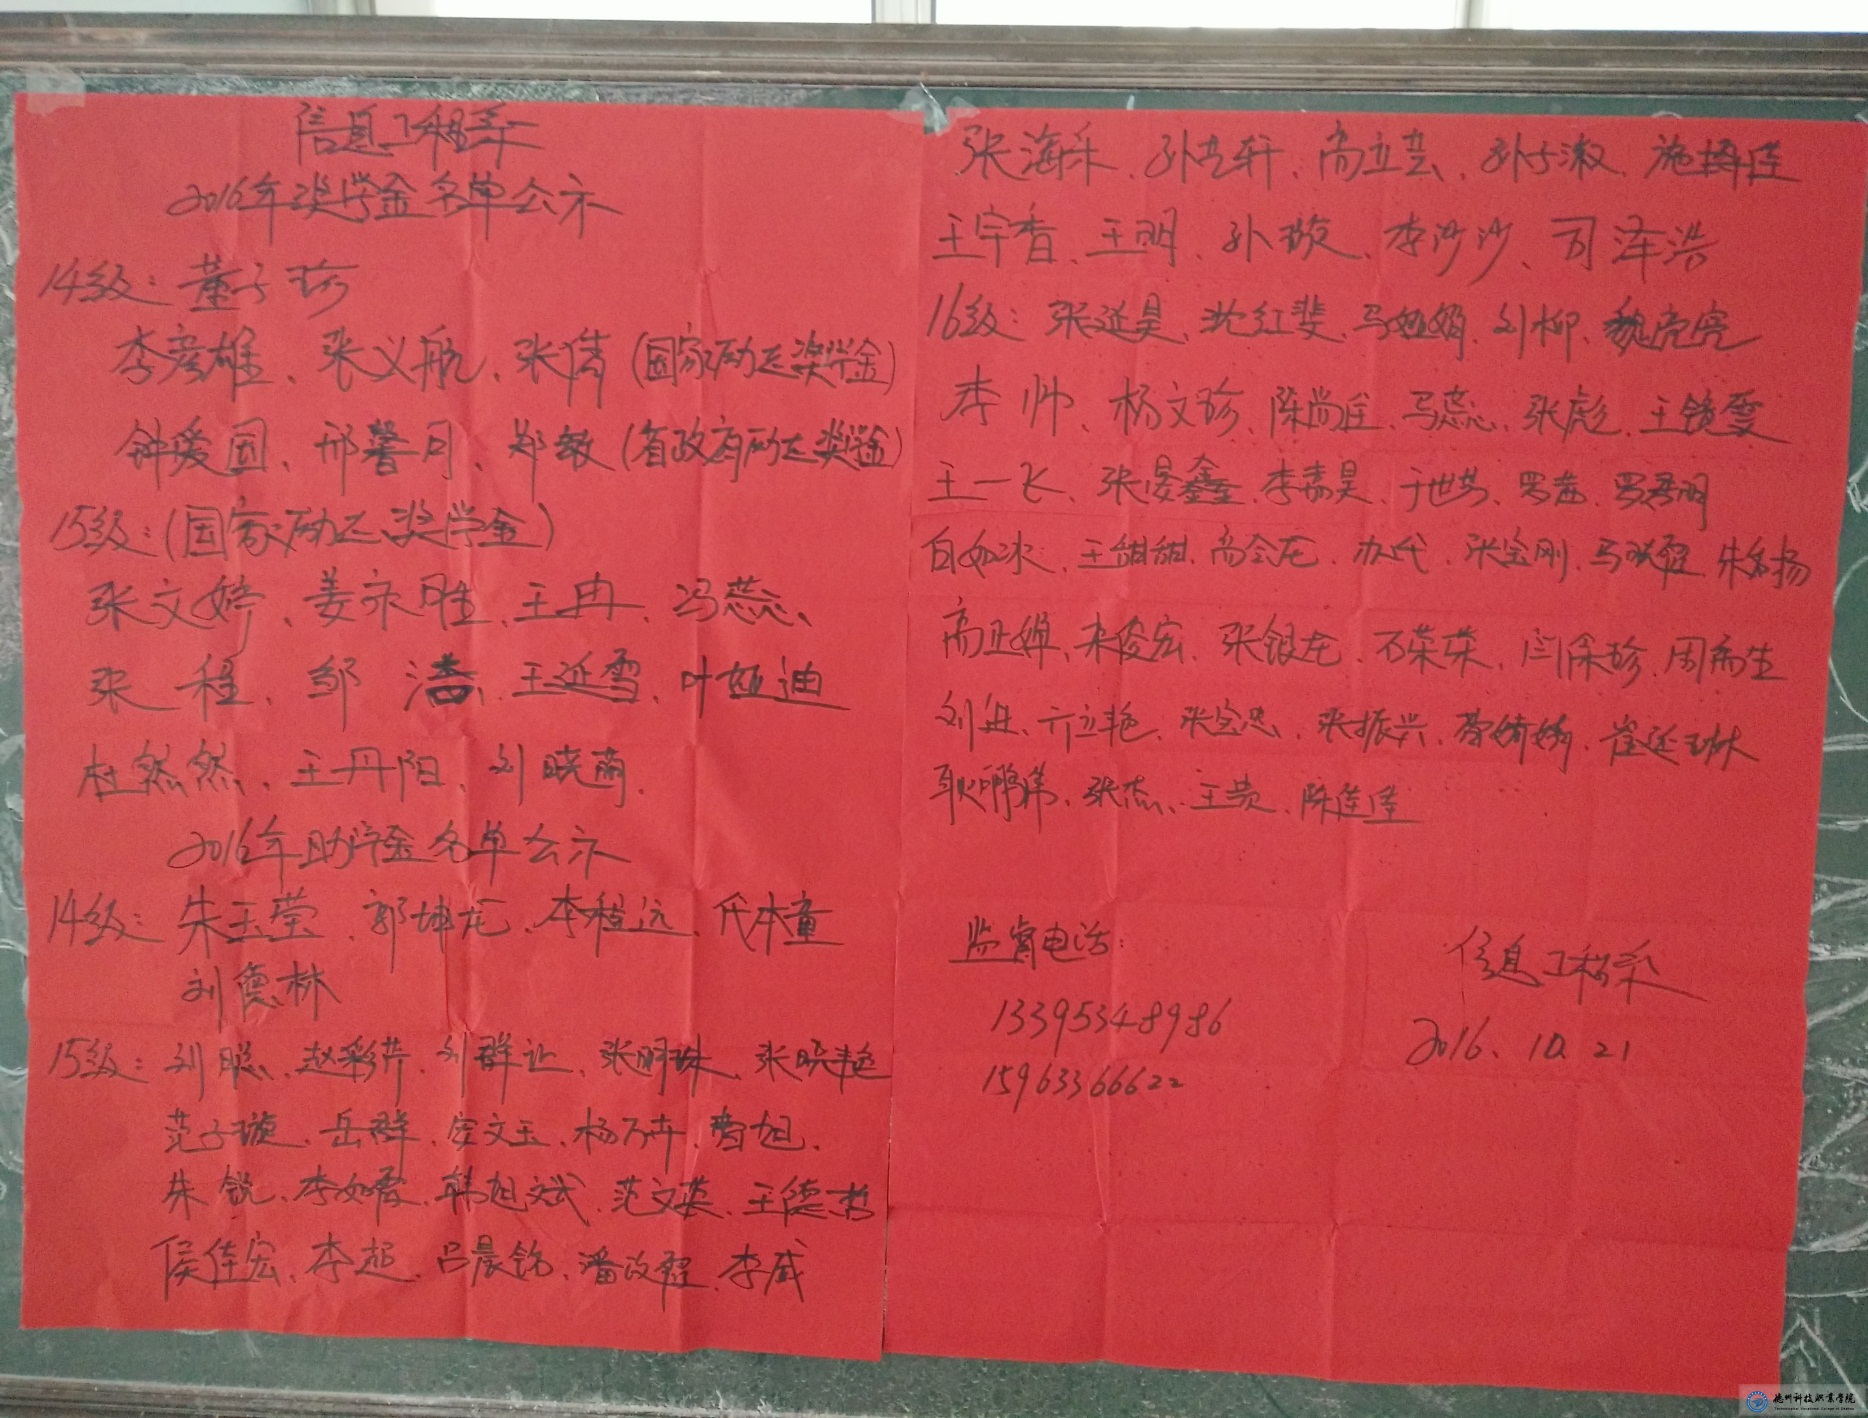 信息工程系
2016年奖学金名单公示
14级：董子珍
李彦雄、张义航、张倩（国家励志奖学金）
钟爱国、邢馨可、郑敏（省政府励志奖学金）
15级：（国家励志奖学金）
张文婷、姜永胜、王冉、冯蕊、
张程、邹潘、王延雪、叶娅迪
杜然然、王丹阳、刘晓萌
2016年助学金名单公示
14级：朱玉莹、郭坤龙、李程远、代本童
刘德林
15级：刘聪、赵彩芹、刘群让、张明珠、张晓艳
范子璇、岳群、安文玉、杨万卉、曹旭、
朱锐、李如君、韩旭斌、范文英、王德哲
侯佳宏、李超、吕晨铭、潘改程、李威
张海乐、孙艺轩、高立芸、孙士淑、施择佳
王宇香、王明、孙璇、李沙沙、司泽浩
16级：张延昊、沈红斐、马娅娟、刘柳、魏亮亮
李帅、杨文珍、陈尚廷、马蕊、张彪、王镜雯
王一飞、张晏鑫、李嘉昊、于世芳、罗茜、罗君明
白如冰、王甜甜、高金龙、苏代、张宝刚、马晓程、朱名扬
高亚婵、宋俊宏、张银龙、石荣荣、闫保珍、周希生
刘进、亓立艳、张宝忠、张振兴、曹娇娇、崔廷琳
耿鹏伟、张杰、王贵、陈佳佳
监督电话：
13395348986
15963366622
信息工程系
2016.10.21
德州科技职业学院